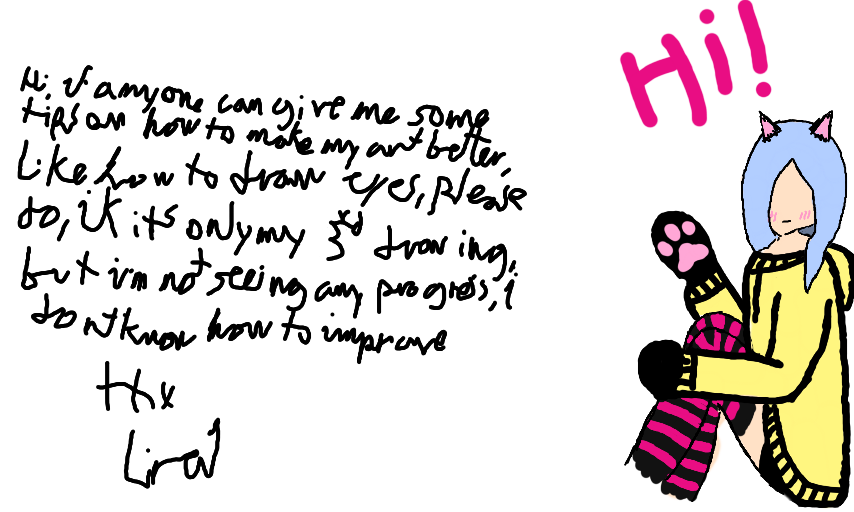 Hi!
Hi, if anyone can give me some
tips on how to make my art better,
like how to draw eyes, please
do, ik its only my 3rd drawing,
but i'm not seeing any progress, i
dont know how to improve
thx